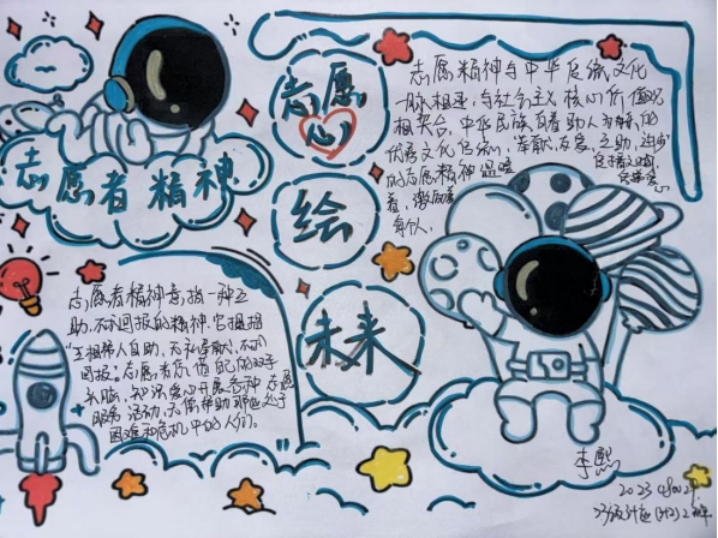 志愿者精神
志愿
心
绘
未来
志愿精神与中华传统文化
一脉相连,与社会主义核心价值观
相契合,中华民族有着助人为乐的
优秀文化传统,奉献,友爱,互助,进步
的志愿精神温暖
着,激励着
每个人.
志愿者精神意指一种互
助,不求回报的精神.它提倡
"互相帮人自助,无私奉献,不求
回报。志愿者凭借自己的双手
头脑,知识爱心开展各种志愿
服务活动,无偿帮助那些处于
困难和危机中的人们。
李熙